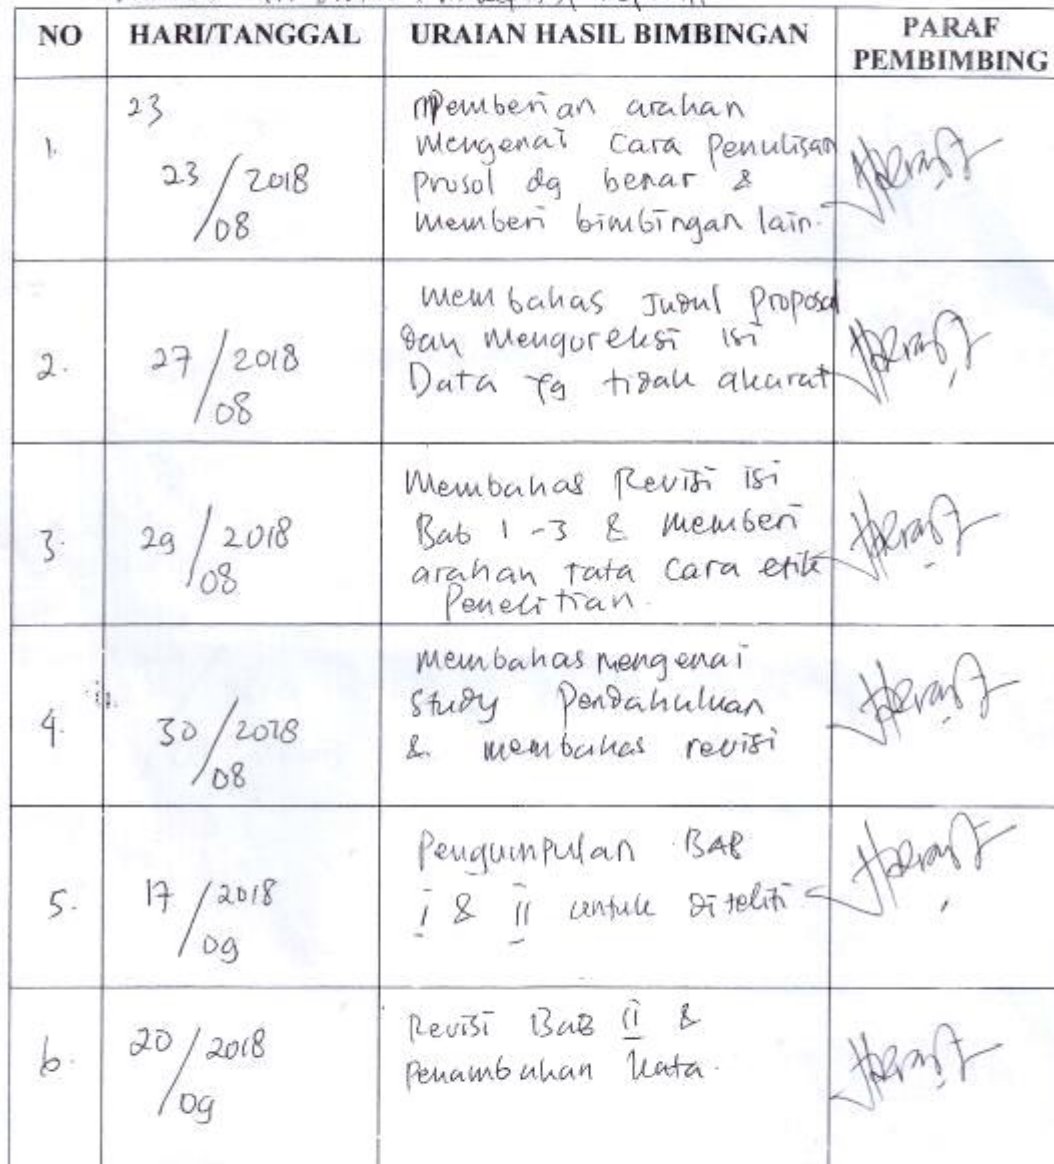 NO HARI/TANGGAL URAIAN HASIL BIMBINGAN PARAF PEMBIMBING
1. 23
23/08 2018
Pemberian arahan
mengenai Cara Penulisan
Prosol dg benar &
memberi bimbingan lain.
2. 27/08 2018
membahas Judul Proposal
dan Mengoreksi isi
Data yg tidak akurat
3. 29/08 2018
Membahas Revisi isi
Bab 1-3 & memberi
arahan tata cara etik
Penelitian.
4. 30/08 2018
Membahas mengenai
Study Pendahuluan
& membahas revisi
5. 17/09 2018
Pengumpulan BAB
I & II untuk Diteliti
6. 20/09 2018
Revisi BaB II &
Penambahan Kata.